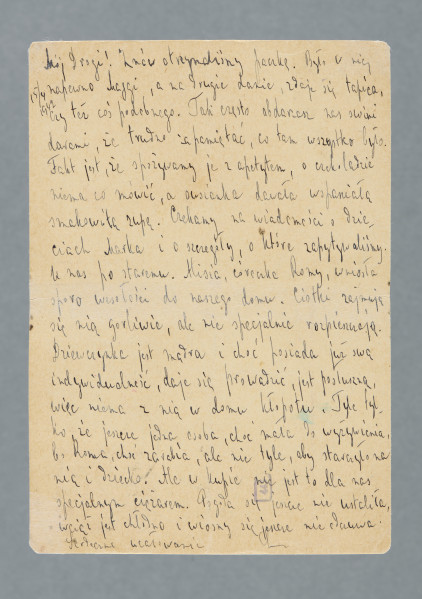 Mój Drogi! Znów otrzymaliśmy paczkę. Było w niej
15/4 1942
napewno Maggi, a na drugie danie, zdaje się tapioca,
czy też coś podobnego. Tak często obdarzasz nas swimi
darami, że trudno zapamiętać, co tam wszystko było.
Fakt jest, że spożywamy je z apetytem, o czekoladzie
niema co mówić, a owsianka dawała wspaniałą
smakowitą zupę. Czekamy na wiadomości o dzie-
ciach Marka i o szczegóły, o które zapytywaliśmy.
U nas po staremu. Misia, córeczka Romy, wniosła
sporo wesołości do naszego domu. Ciotki zajmują
się nią gorliwie, ale nie specjalnie rozpieszczają.
Dziewczynka jest mądra i choć posiada już swą
indywidualność, daje się prowadzić, jest posłuszna,
więc niema z nią w domu kłopotu. Tyle tyl-
ko, że jeszcze jedna osoba, choć mała do wyżywienia,
bo Roma, choć zarabia, ale nie tyle, aby starczyło na
nią i dziecko. Ale w kupie nie jest to dla nas
specjalnym ciężarem. Pogoda się jeszcze nie ustaliła,
wciąż jest chłodno i wiosny się jeszcze nie czuwa.
Serdeczne ucałowania